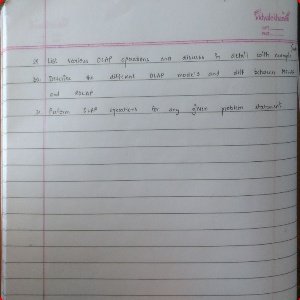 Vidyarthi
List various OLAP operations and discuss in detail with example
Describe the different OLAP models and diff between MOLAP
and ROLAP
Perform OLAP operations for any given problem statement